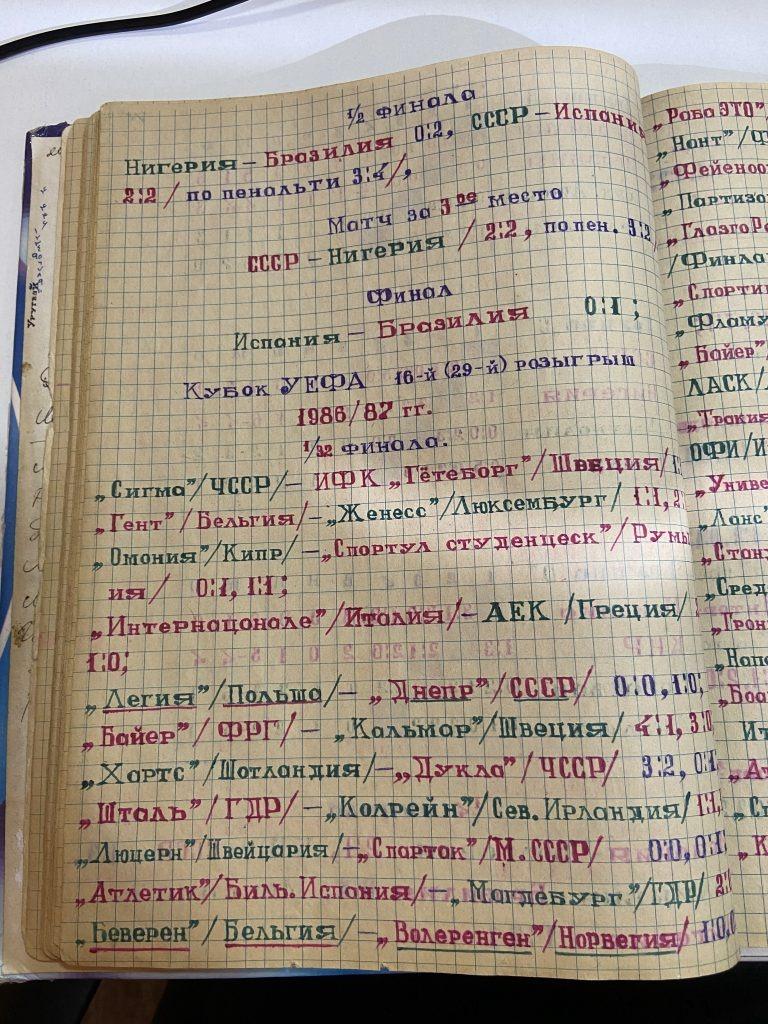 1/2 финала
Нигерия – Бразилия 0:2, СССР – Испания
2:2 / по пенальти 3:4/,
Матч за 3ое место
СССР – Нигерия / 2:2, по пен. 3:2
Финал
Испания – Бразилия 0:1;
Кубок УЕФА 16-й (29-й) розыгрыш
1986/87 гг.
1/32 финала.
„Сигма"/ЧССР/– ИФК „Гётеборг"/Швеция/
„Гент"/Бельгия/–„Женесс"/Люксембург/ 1:1, 2
„Омония"/Кипр/ –„Спортул студенцеск"/Румы
ия/ 0:1, 1:1;
„Интернационале"/Италия/– АЕК /Греция/
1:0;
„Легия"/Польша/– „Днепр"/СССР/ 0:0, 1:0;
„Байер"/ФРГ/– „Кальмар"/Швеция/ 4:1, 3:0
„Хартс"/Шотландия/–„Дукла"/ЧССР/ 3:2, 0:1
„Шталь"/ГДР/–„Колрейн"/Сев. Ирландия/ 1:1,
„Люцерн"/Швейцария/–„Спартак"/М. СССР/ 0:0, 0:1
„Атлетик"/Биль. Испания/–„Магдебург"/ГДР/ 2:
„Беверен"/Бельгия/–„Волеренген"/Норвегия/ 1:0,
„Раба ЭТО"
„Нант"/Ф
„Фейеноо
„Партиза
„Глазго Р
/Финла
„Спорти
„Фламу
„Байер"/
ЛАСК/
„Тракия
ОФИ/И
„Униве
„Ланс"
„Станд
„Сред
„Грон
„Напо
„Боа
Ит
„Ат
„Сп
„К
Уругвай